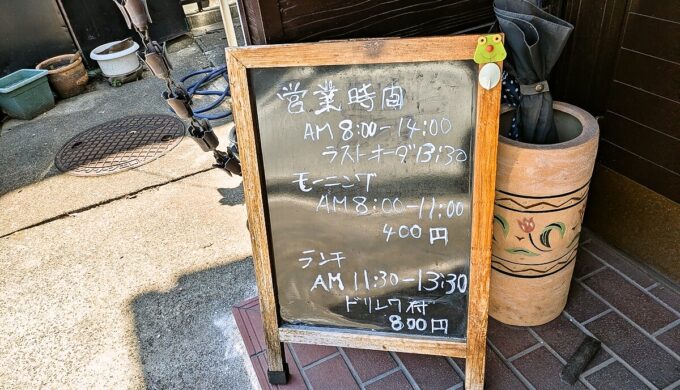 営業時間
AM 8:00-14:00
ラストオーダ13:30
モーニング
AM8:00-11:00
400円
ランチ
AM 11:30-13:30
ドリンク付
800円